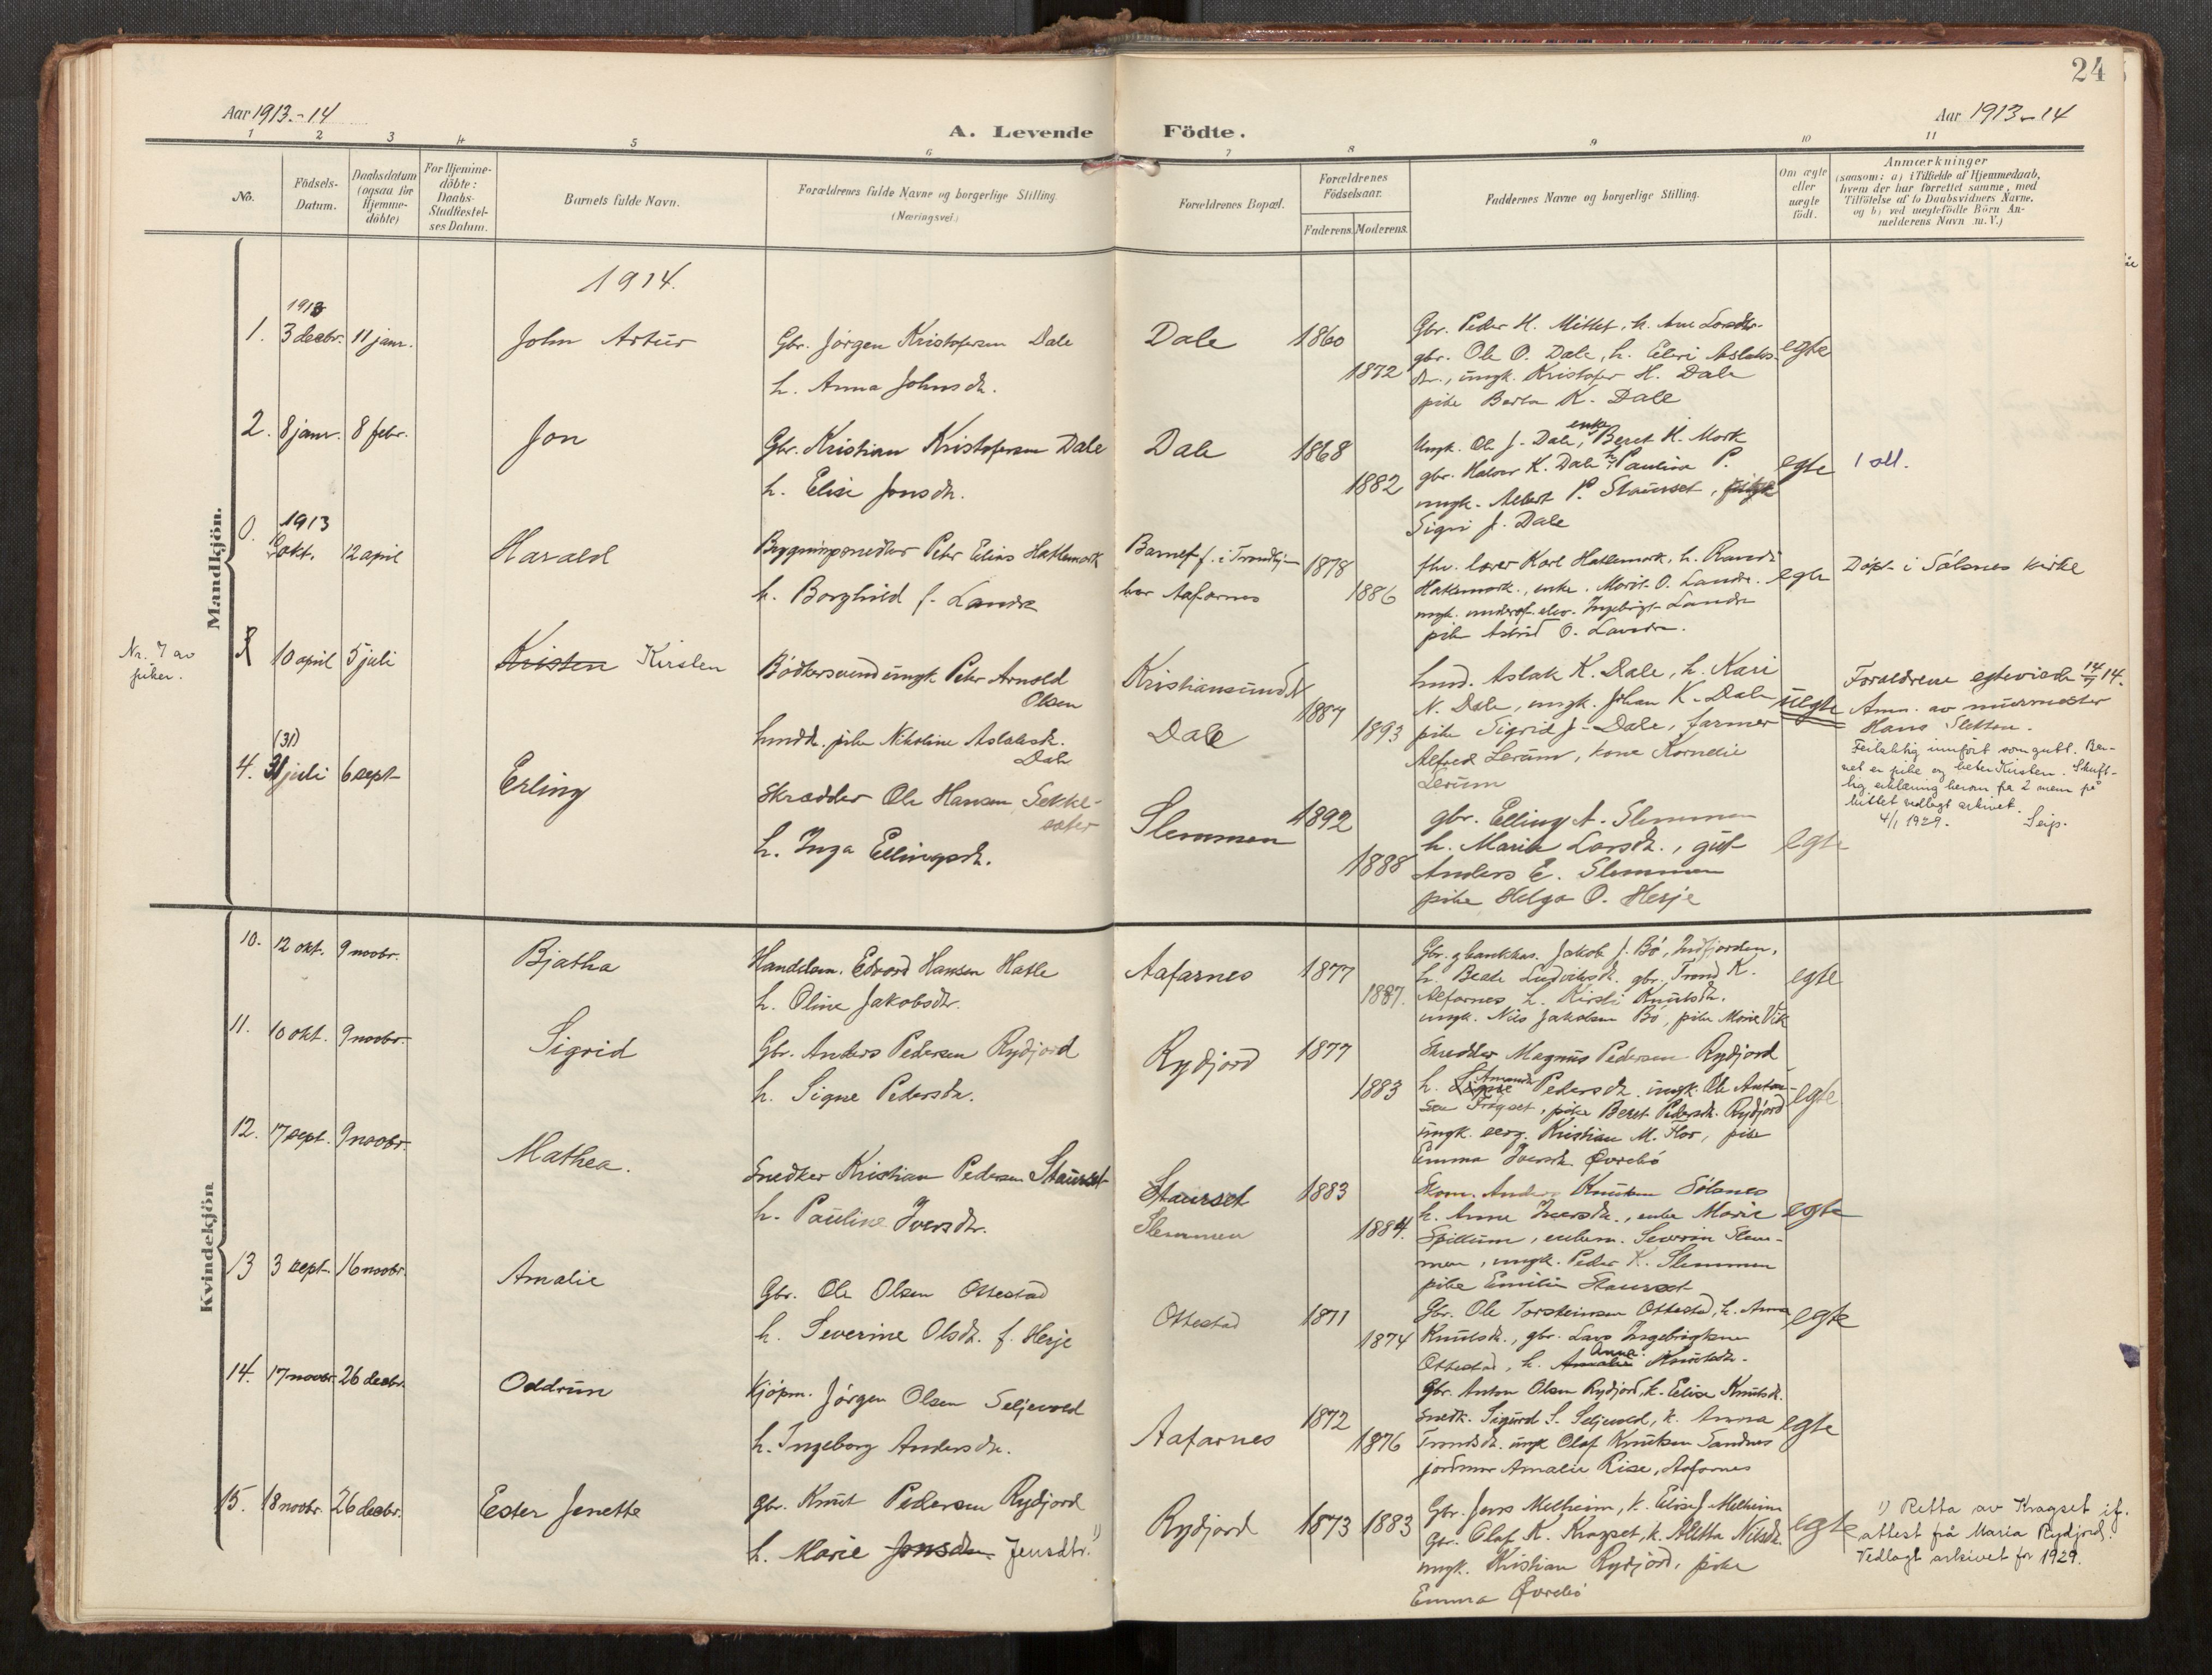 24
Aar 1913.-14
Aar 1913-14
A. Levende Födte.
1 2 3 4 5 6 7 8 9 10 11
No.
Födsels-Datum.
Daabsdatum (ogsaa for Hjemme-döbte)
For Hjemme-döbte: Daabs-Stadfæstel-ses Datum.
Barnets fulde Navn.
Forældrenes fulde Navne og borgerlige Stilling. (Næringsvei.)
Forældrenes Bopæl.
Forældrenes Födselsaar.
Faderens. Moderens.
Faddernes Navne og borgerlige Stilling.
Om ægte eller uægte födt.
Anmærkninger
(saasom: a) i Tilfælde af Hjemmedaab, hvem der har forrettet samme, med Tilföielse af to Daabsvidners Navne, og b) ved uægtefödte Börn Anmelderens Navn m.V.)
Mandkjön.
1914.
1. 1913 3 decbr. 11 janr. John Artur
Gbr. Jörgen Kristofersen Dale
h. Anna Johnsdtr.
Dale 1860 1872
Gbr. Peder H. Mittet, h. Ane Larsdtr.
gbr. Ole O. Dale, h. Eleri Aslaks-
dtr., ungk. Kristofer H. Dale
pike Berta K. Dale
egte
2. 8 janr. 8 febr. Jon
Gbr. Kristian Kristofersen Dale
h. Elise Jonsdtr.
Dale 1868 1882
Ungk. Ole J. Dale, enke Beret H. Mork
gbr. Halvor K. Dale, h. Paulina P.
ungk. Albert P. Staurset,
Sigri J. Dale
egte
0. 1913 okt. 12 april Harald
Bygningssnedker Peter Elias Hatlemark
h. Borghild f. Landre
Barnet f. i Trondhj-
bor Aafarnes
1878 1886
fhv. lærer Karl Hatlemark, h. Randi
Hatlemark, enke Marit O. Landre.
ungk. underof. elev. Ingebrigt Landre
pike Astrid O. Landre.
egte
Döpt i Sölsnes kirke
Nr. 7 av
piker.
10 april 5 juli Kristen Kirsten
Bödkersvend ungk Peter Arnold
Olsen
husmdtr. pike Nikoline Aslaksdtr.
Dale
Kristiansund N
Dale
1887 1893
husm. Aslak K. Dale, h. Kari
N. Dale, ungk. Johan K. Dale
pike Sigrid J. Dale, farmer
Alfred Lerum, kone Kornelie
Lerum
uegte
Foreldrene egteviede 14/7 14.
Anm. av murmester
Hans Sletten.
Feilaktig innfört som gutt. Bar-
net er pike og heter Kirsten. Skrift-
lig erklæring herom fra 2 menn på
Mittet vedlagt arkivet.
4/1 1929. Seip.
4. (31) 31 juli 6 sept. Erling
Skrædder Ole Hansen Sekke-
sæter
h. Inga Ellingsdtr.
Slemmen 1892 1888
gbr. Elling A. Slemmen
h. Marie Larsdtr., gut
Anders E. Slemmen
pike Helga O. Hesje
egte
Kvindekjön
10. 12 okt. 9 novbr. Bjatha
Handelsm. Edvard Hansen Hatle
h. Oline Jakobsdtr.
Aafarnes 1877 1887.
Gbr. g bankkas. Jakob J. Bö, Indfjorden,
h. Beate Ludviksdtr. gbr. Trond K.
Alfarnes, h. Kirsti Knutsdtr.
ungk. Nils Jakobsen Bö, pike Marie Vik
egte
11. 10 okt. 9 novbr. Sigrid
Gbr. Anders Pedersen Rydjord
h. Signe Pedersdtr.
Rydjord 1877 1883
Skredder Magnus Pedersen Rydjord
h. Signe Amanda Pedersdtr. ungk. Ole Anton-
sen Frögset, pike Beret Pedersdtr. Rydjord
ungk. serg. Kristian M. Flor, pike
Emma Iversdtr. Övrebö
egte
12. 17 sept. 9 novbr. Mathea.
Snedker Kristian Pedersen Staurset
h. Pauline Iversdtr.
Staurset
Slemmen
1883 1884.
Skom. Anders Knutsen Sölsnes
h. Anne Iversdtr., enke Marie
Spillum, enkem. Severin Slem-
men, ungk. Peder K. Slemmen
pike Emilie Staurset
egte
13 3 sept. 16 novbr. Amalie
Gbr. Ole Olsen Ottestad
h. Severine Olsdtr. f. Hesje
Ottestad 1871 1874
Gbr. Ole Torsteinsen Ottestad, h. Anna
Knutsdtr., gbr. Lars Ingebrigtsen
Ottestad, h. Amalie Anna Knutsdtr.
Gbr. Anton Olsen Rydjord, h. Elise Knutsdtr.
egte
14. 17 novbr. 26 decbr. Oddrun
Kjöpm. Jörgen Olsen Seljevold
h. Ingeborg Andersdtr.
Aafarnes 1872 1876
snedk. Sigurd S. Seljevold, h. Anna
Trondsdtr. ungk Olaf Knutsen Sandnes
jordmor Amalie Rise, Aafarnes
egte
15. 18 novbr. 26 decbr. Ester Jenette
gbr. Knut Pedersen Rydjord
h. Marie Jonsdtr. Jensdtr. 1)
Rydjord 1873 1883
Gbr. Jens Melheim, h. Elise J. Melheim
Gbr. Olaf K. Kragset, h. Aletta Nilsdtr.
ungk. Kristian Rydjord, pike
Emma Övrebö
egte
1) Retta av Kragset if.
attest frå Maria Rydjord.
Vedlagt arkivet for 1929.